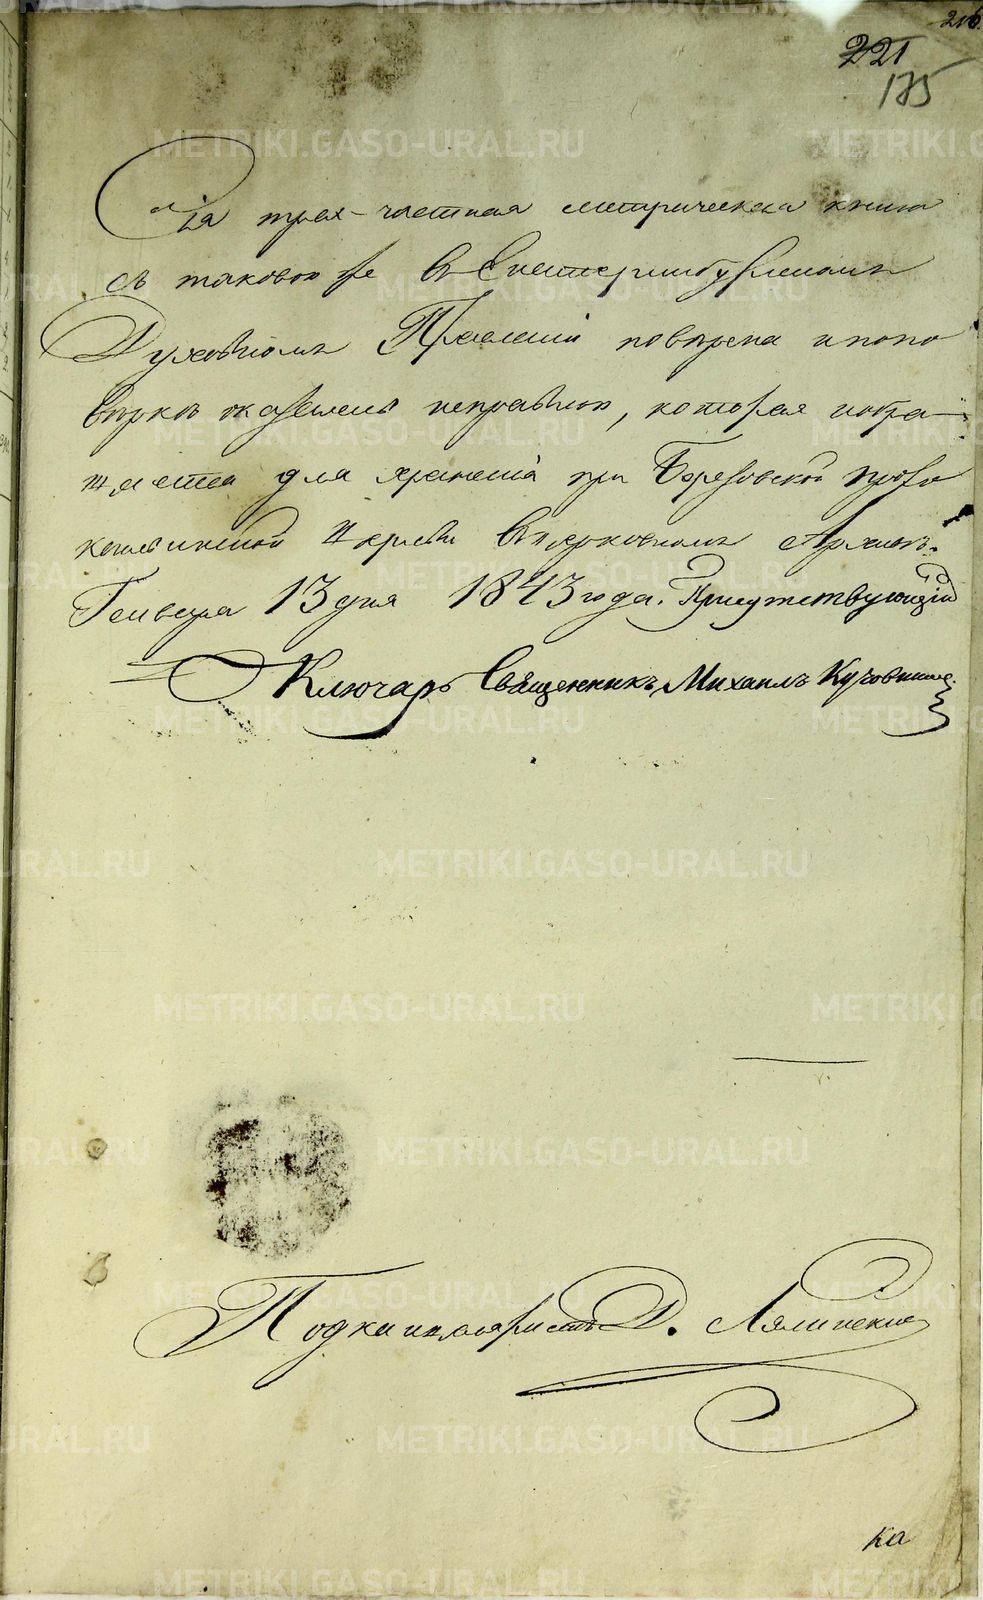 216
221
175
Сія трех-частная метрическая книга
съ таковою же въ Екатеринбургскомъ
Духовномъ Правленіи повѣрена и по по
вѣркѣ оказалась неправльною, которая возвра-
щается для храненія при Березовской
церкви въ церковномъ Архивѣ.
Генваря 13 дня 1843 года. Присутствующій
Ключарь Священникъ Михаилъ
Подканцеляристъ Д. Лялинскій
ка
METRIKI.GASO-URAL.RU